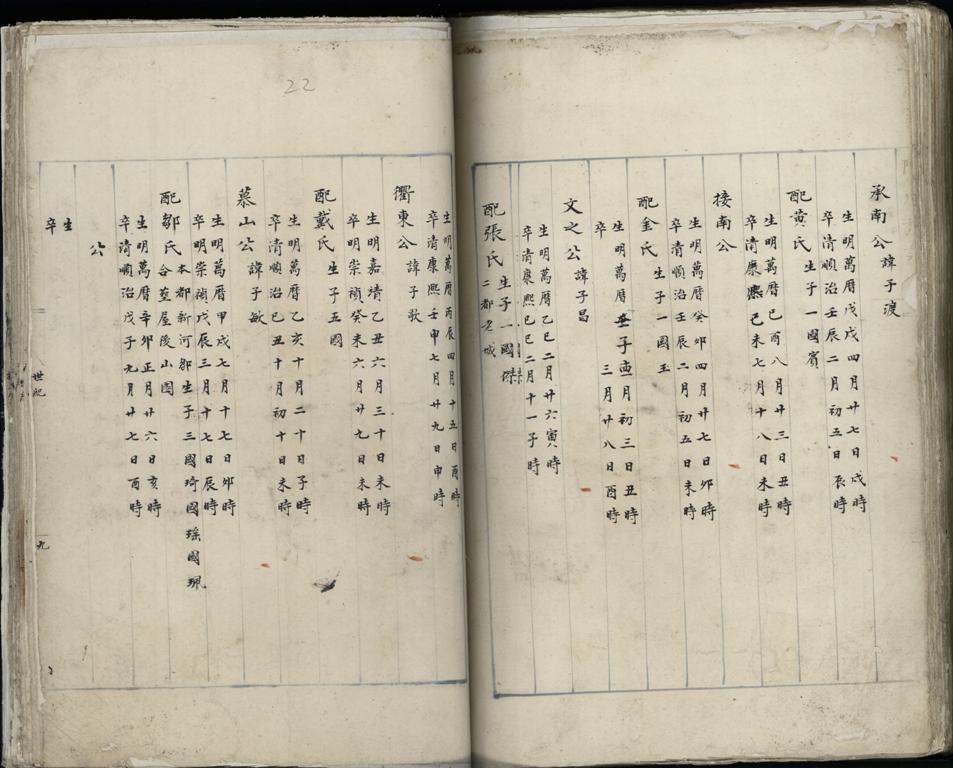 承南公諱子渡
生明萬曆戊戌四月廿七日戌時
卒清順治壬辰二月初五日辰時
配黄氏 生子一國賓
生明萬曆己酉八月廿三日丑時
卒清康熙己未七月十八日未時
接南公
生明萬曆癸卯四月廿七日卯時
卒清順治壬辰二月初五日未時
配金氏 生子一國玉
生明萬曆壬子 月初三日丑時
卒 三月廿八日酉時
文之公 諱子昌
生明萬曆乙巳二月廿六寅時
卒清康熙己巳二月十一子時
配張氏 生子一國
二都
生明萬曆丙辰四月十五日酉時
卒清康熙壬申七月廿九日申時
衢東公 諱子敬
生明嘉靖乙丑六月三十日未時
卒明崇禎癸未六月廿九日未時
配戴氏 生子五國
生明萬曆乙亥十月二十日子時
卒清順治己丑十月初十日未時
慕山公 諱子敏
生明萬曆甲戌七月十七日卯時
卒明崇禎戊辰三月十七日辰時
配鄒氏 本都新河鄒生子三國琦國瑤國珮
合葬屋後山園
生明萬曆辛卯正月廿六日亥時
卒清順治戊子九月廿七日酉時
公
生
卒
世紀
九
22